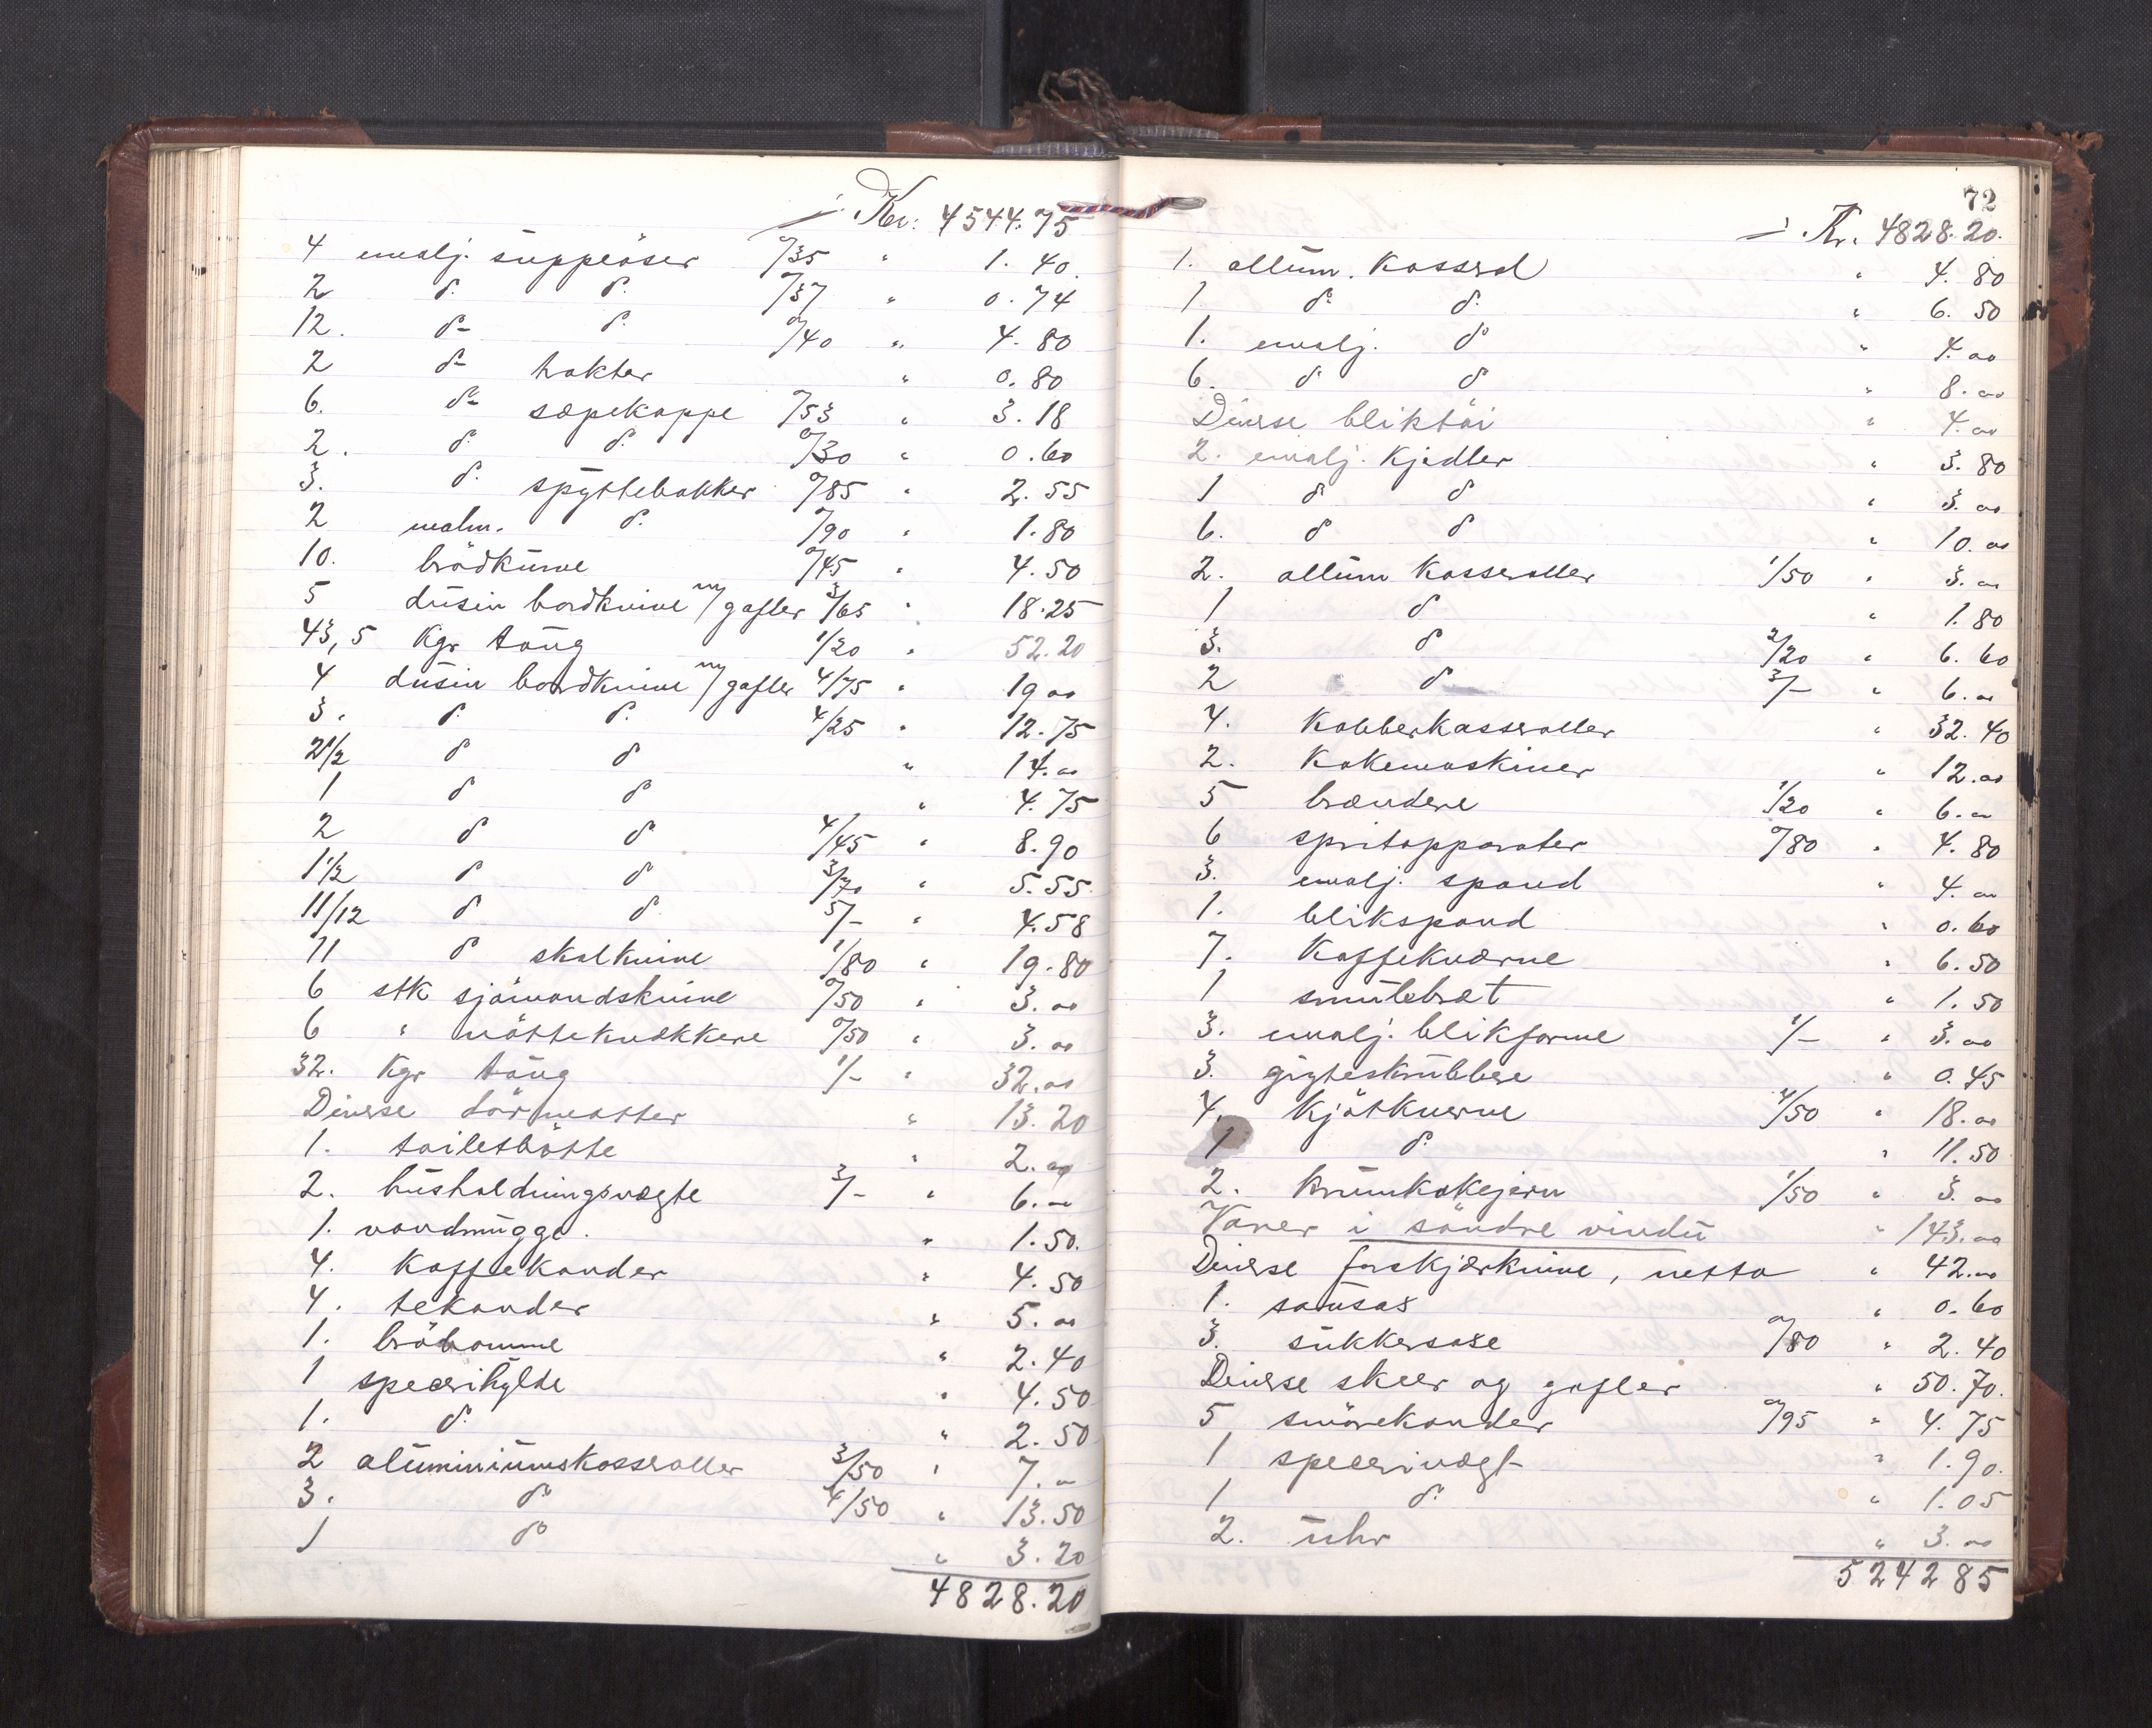 ÷ Kr: 4544.75
4 emalj. suppeöser 0/35 " 1.40.
2 do. do. 0/37 " 0.74
12. do do. 0/40 " 4.80
2 do trakter " 0.80
6. do sæpekoppe 0/53 " 3.18
2. do. do. 0/30 " 0.60
3. do. spyttebakker 0/85 " 2.55
2 malm. do. 0/90 " 1.80
10. brödkurve 0/45 " 4.50
5 dusin bordknive m/gafler 3/65 " 18.25
43,5 Kgr taug 1/20 " 52.20
4 dusin bordknive m/gafler 4/75 " 19 00
3. do. do. 4/25 " 12.75
2 1/2 do do " 14.00
1 do do " 4.75
2 do do 4/45 " 8.90
1 1/2 do do 3/70 " 5.55
11/12 do do 5/- " 4.58
11 do skalknive 1/80 " 19.80
6 stk sjömandsknive 0/50 " 3.00
6 " nötteknækkere 0/50 " 3.00
32. Kgr taug 1/- " 32.00
Diverse dörmatter " 13.20
1. toiletbötte " 2.00
2. husholdningsvægte 3/- " 6.00
1. vandmugge. " 1.50.
4. Kaffekander " 4.50
4. tekander " 5.00
1. bröbomme " 2.40
1 specerihylde " 4.50
1. do. " 2.50
2 aluminiumskasseroller 3/50 " 7.00
3. do 4/50 " 13.50
1 do " 3.20
4828.20
72
÷ Kr. 4828.20.
1. allum. Kasserol " 4.80
1 do do. " 6.50
1. emalj. do " 4.00
6. do do " 8.00
Diverse bliktöi " 4.00
2. emalj. Kjedler " 3.80
1 do do " 3.00
6. do do " 10.00
2. allum Kasseroller 1/50 " 3.00
1 do " 1.80
3. do 2/20 " 6.60
2 do 3/- " 6.00
4. Kobberkasseroller " 32.40
2. Kokemaskiner " 12.00
5 brændere 1/20 " 6.00
6 spritapparater 0/80 " 4.80
3. emalj. spand " 4.00
1. blikspand " 0.60
7. Kaffekværne " 6.50
1 smulebræt " 1.50
3. emalj. blikforme 1/- " 3.00
3. gryteskrubbere " 0.45
4. Kjötkverne 4/50 " 18.00
1 do. " 11.50
2. Krumkakejern 1/50 " 3.00
Varer i söndre vindu " 143.00
Diverse forskjærknive, netto " 42.00
1. sausas " 0.60
3. sukkersaxe 0/80 " 2.40
Diverse skeer og gafler " 50.70.
5 smörekander 0/95 " 4.75
1 specerivægt " 1.90.
1 do. " 1.05
2. uhr " 3.00
5242 85